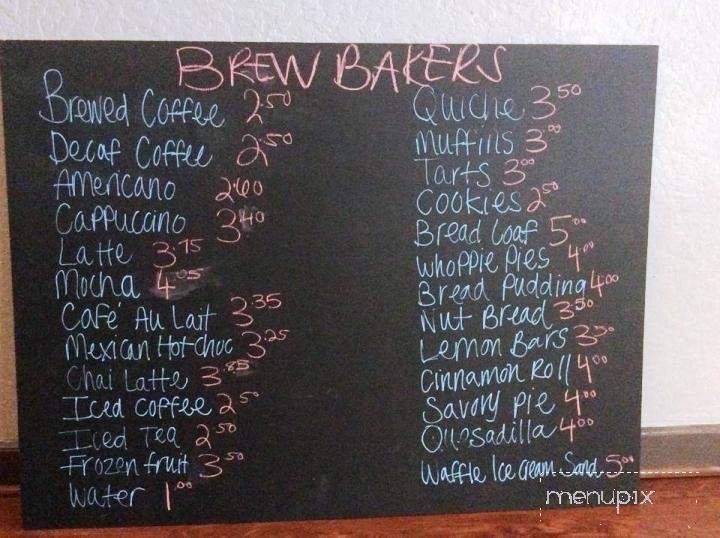 BREW BAKERS
Brewed Coffee 2.50
Decaf Coffee 2.50
Americano 2.60
Cappuccino 3.40
Latte 3.75
Mocha 4.05
Café Au Lait 3.35
Mexican Hot Choc 3.25
Chai Latte 3.85
Iced Coffee 2.50
Iced Tea 2.50
Frozen fruit 3.50
Water 1.00
Quiche 3.50
Muffins 3.00
Tarts 3.00
Cookies 2.50
Bread Loaf 5.00
Whoppie Pies 4.00
Bread Pudding 4.00
Nut Bread 3.50
Lemon Bars 3.50
Cinnamon Roll 4.00
Savory Pie 4.00
Quesadilla 4.00
Waffle Ice Cream Sand. 5.00
menupix